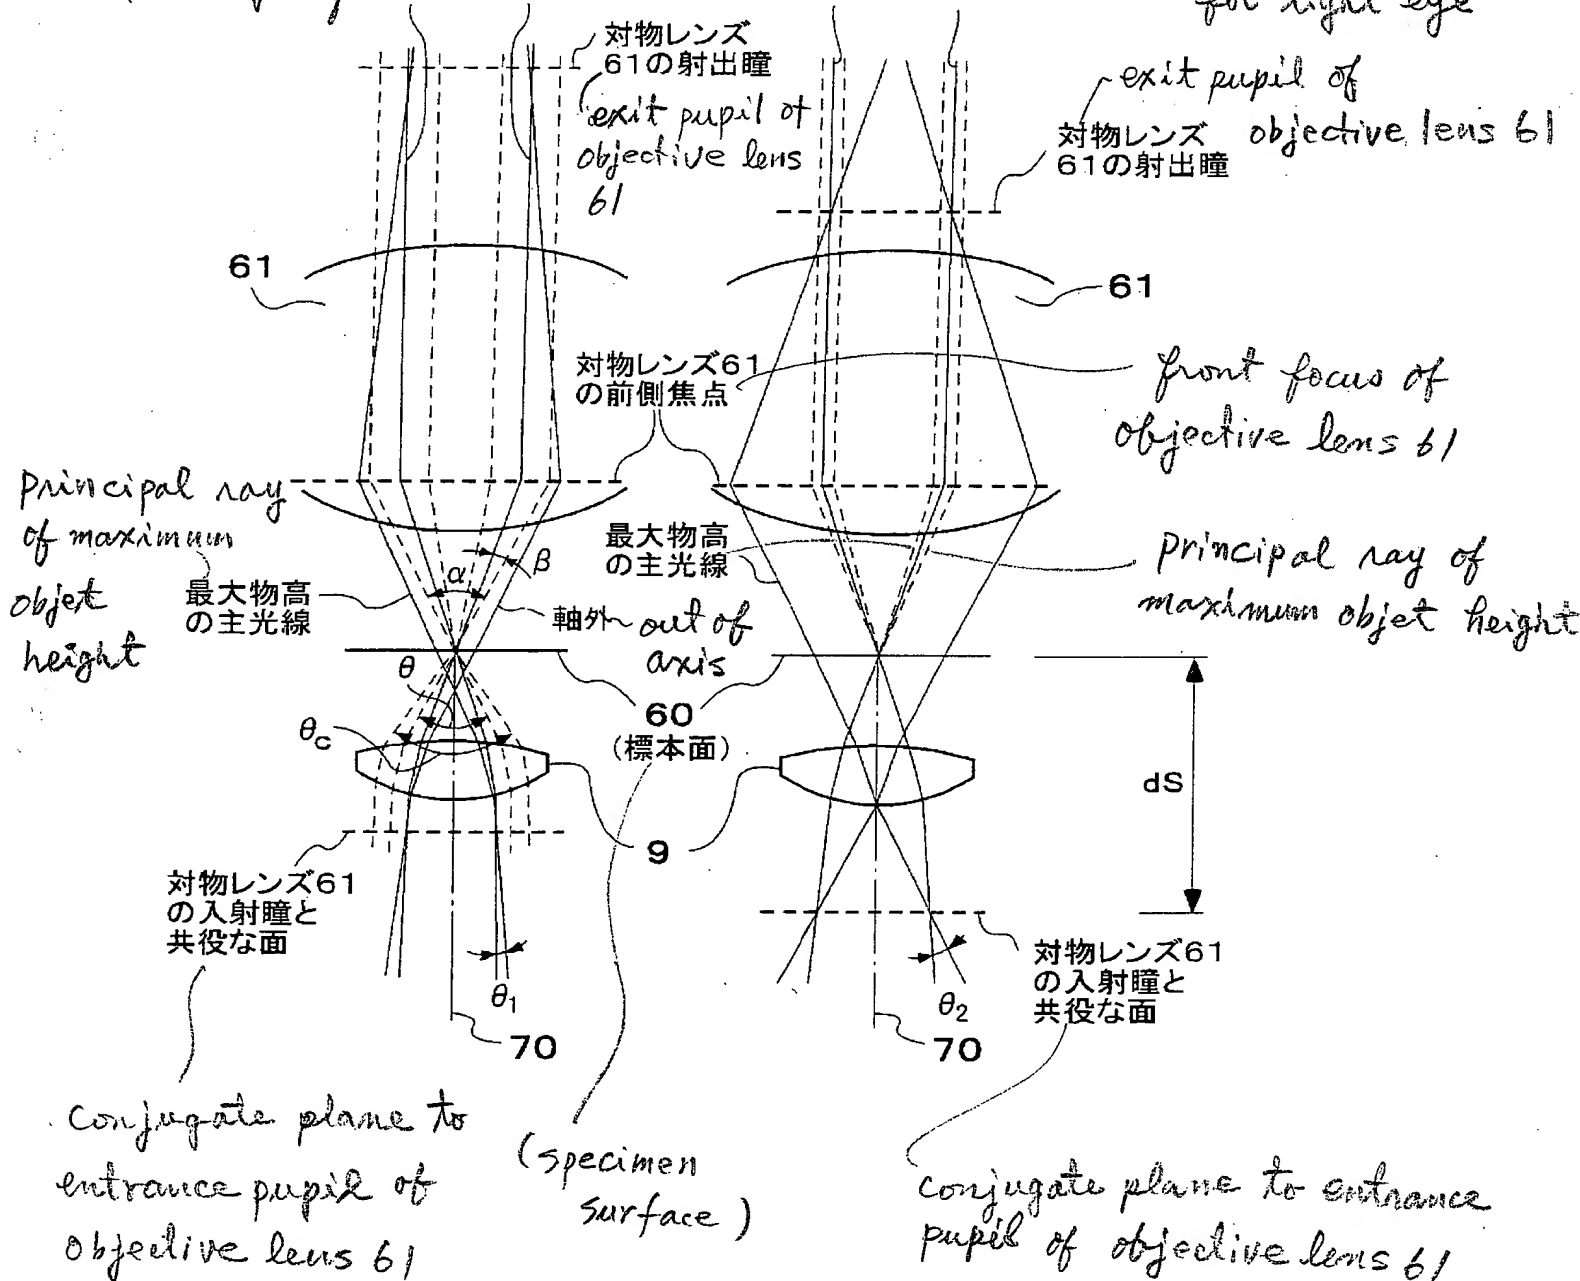 for right eye
対物レンズ
61の射出瞳
exit pupil of
objective lens
61
exit pupil of
objective lens 61
対物レンズ
61の射出瞳
61
61
対物レンズ61
の前側焦点
front focus of
objective lens 61
principal ray
of maximum
objet
height
最大物高
の主光線
α
β
軸外
out of
axis
最大物高
の主光線
principal ray of
maximum objet height
θ
θc
60
(標本面)
9
dS
対物レンズ61
の入射瞳と
共役な面
θ1
70
θ2
70
対物レンズ61
の入射瞳と
共役な面
conjugate plane to
entrance pupil of
objective lens 61
(specimen
surface)
conjugate plane to entrance
pupil of objective lens 61